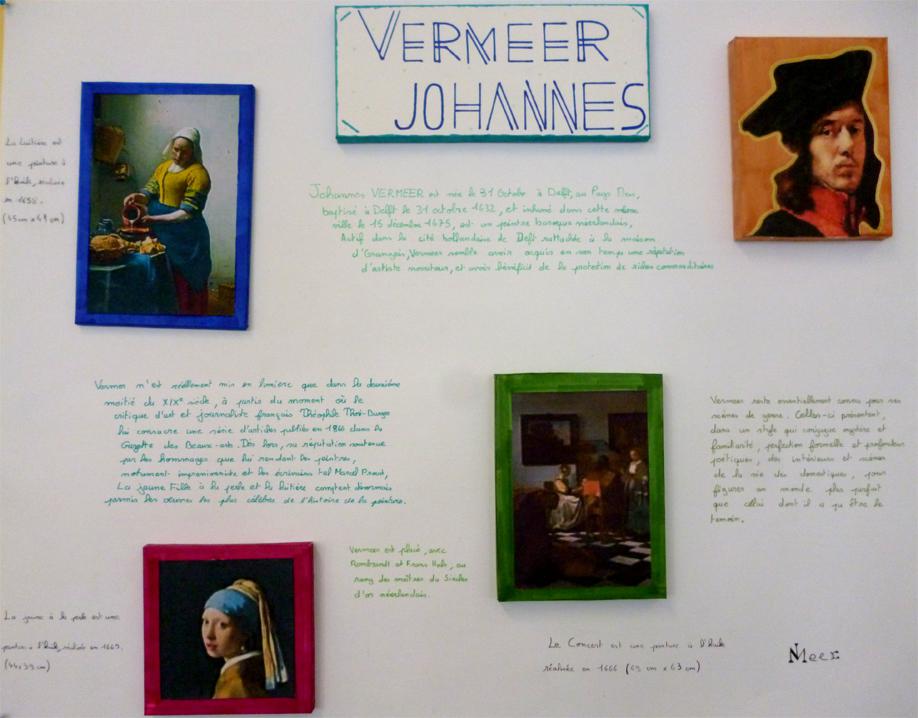 VERMEER
JOHANNES
La laitière est
une peinture à
l'huile, réalisée
en 1658.
(45cm x 41 cm)
Johannes VERMEER est née le 31 Octobre à Delft, au Pays Bas,
baptisé à Delft le 31 octobre 1632, et inhumé dans cette même
ville le 15 décembre 1675, est un peintre baroque néerlandais,
Actif dans la cité hollandaise de Delft rattachée à la maison
d'Orange, Vermeer semble avoir acquis en son temps une réputation
d'artiste novateur, et avoir bénéficié de la protection de riches commanditaires
Vermeer n'est réellement mis en lumière que dans la deuxième
moitié du XIXe siècle, à partir du moment où le
critique d'art et journaliste français Théophile Thoré-Burger
lui consacre une série d'articles publiés en 1866 dans la
Gazette des Beaux-arts. Dès lors, sa réputation soutenue
par les hommages que lui rendent les peintres,
notamment impressionniste et les écrivains tel Marcel Proust,
La jeune Fille à la perle et la laitière comptent désormais
parmis les œuvres les plus célèbres de l'histoire de la peinture.
Vermeer reste essentiellement connu pour ses
scènes de genre. Celles-ci présentent,
dans un style qui conjugue mystère et
familiarité perfection formelle et profondeur
poétiques, des intérieurs et scènes
de la vie des domestiques, pour
figurer un monde plus parfait
que celui dont il a pu être le
témoin.
Vermeer est placé, avec
Rembrandt et Frans Hals, au
rang des maîtres du Siècles
d'or néerlandais.
La jeune à la perle est une
peinture à l'huile, réalisée en 1665.
(44x39cm)
Le Concert est une peinture à l'huile
réalisée en 1666 (69 cm x 63 cm)
Meer